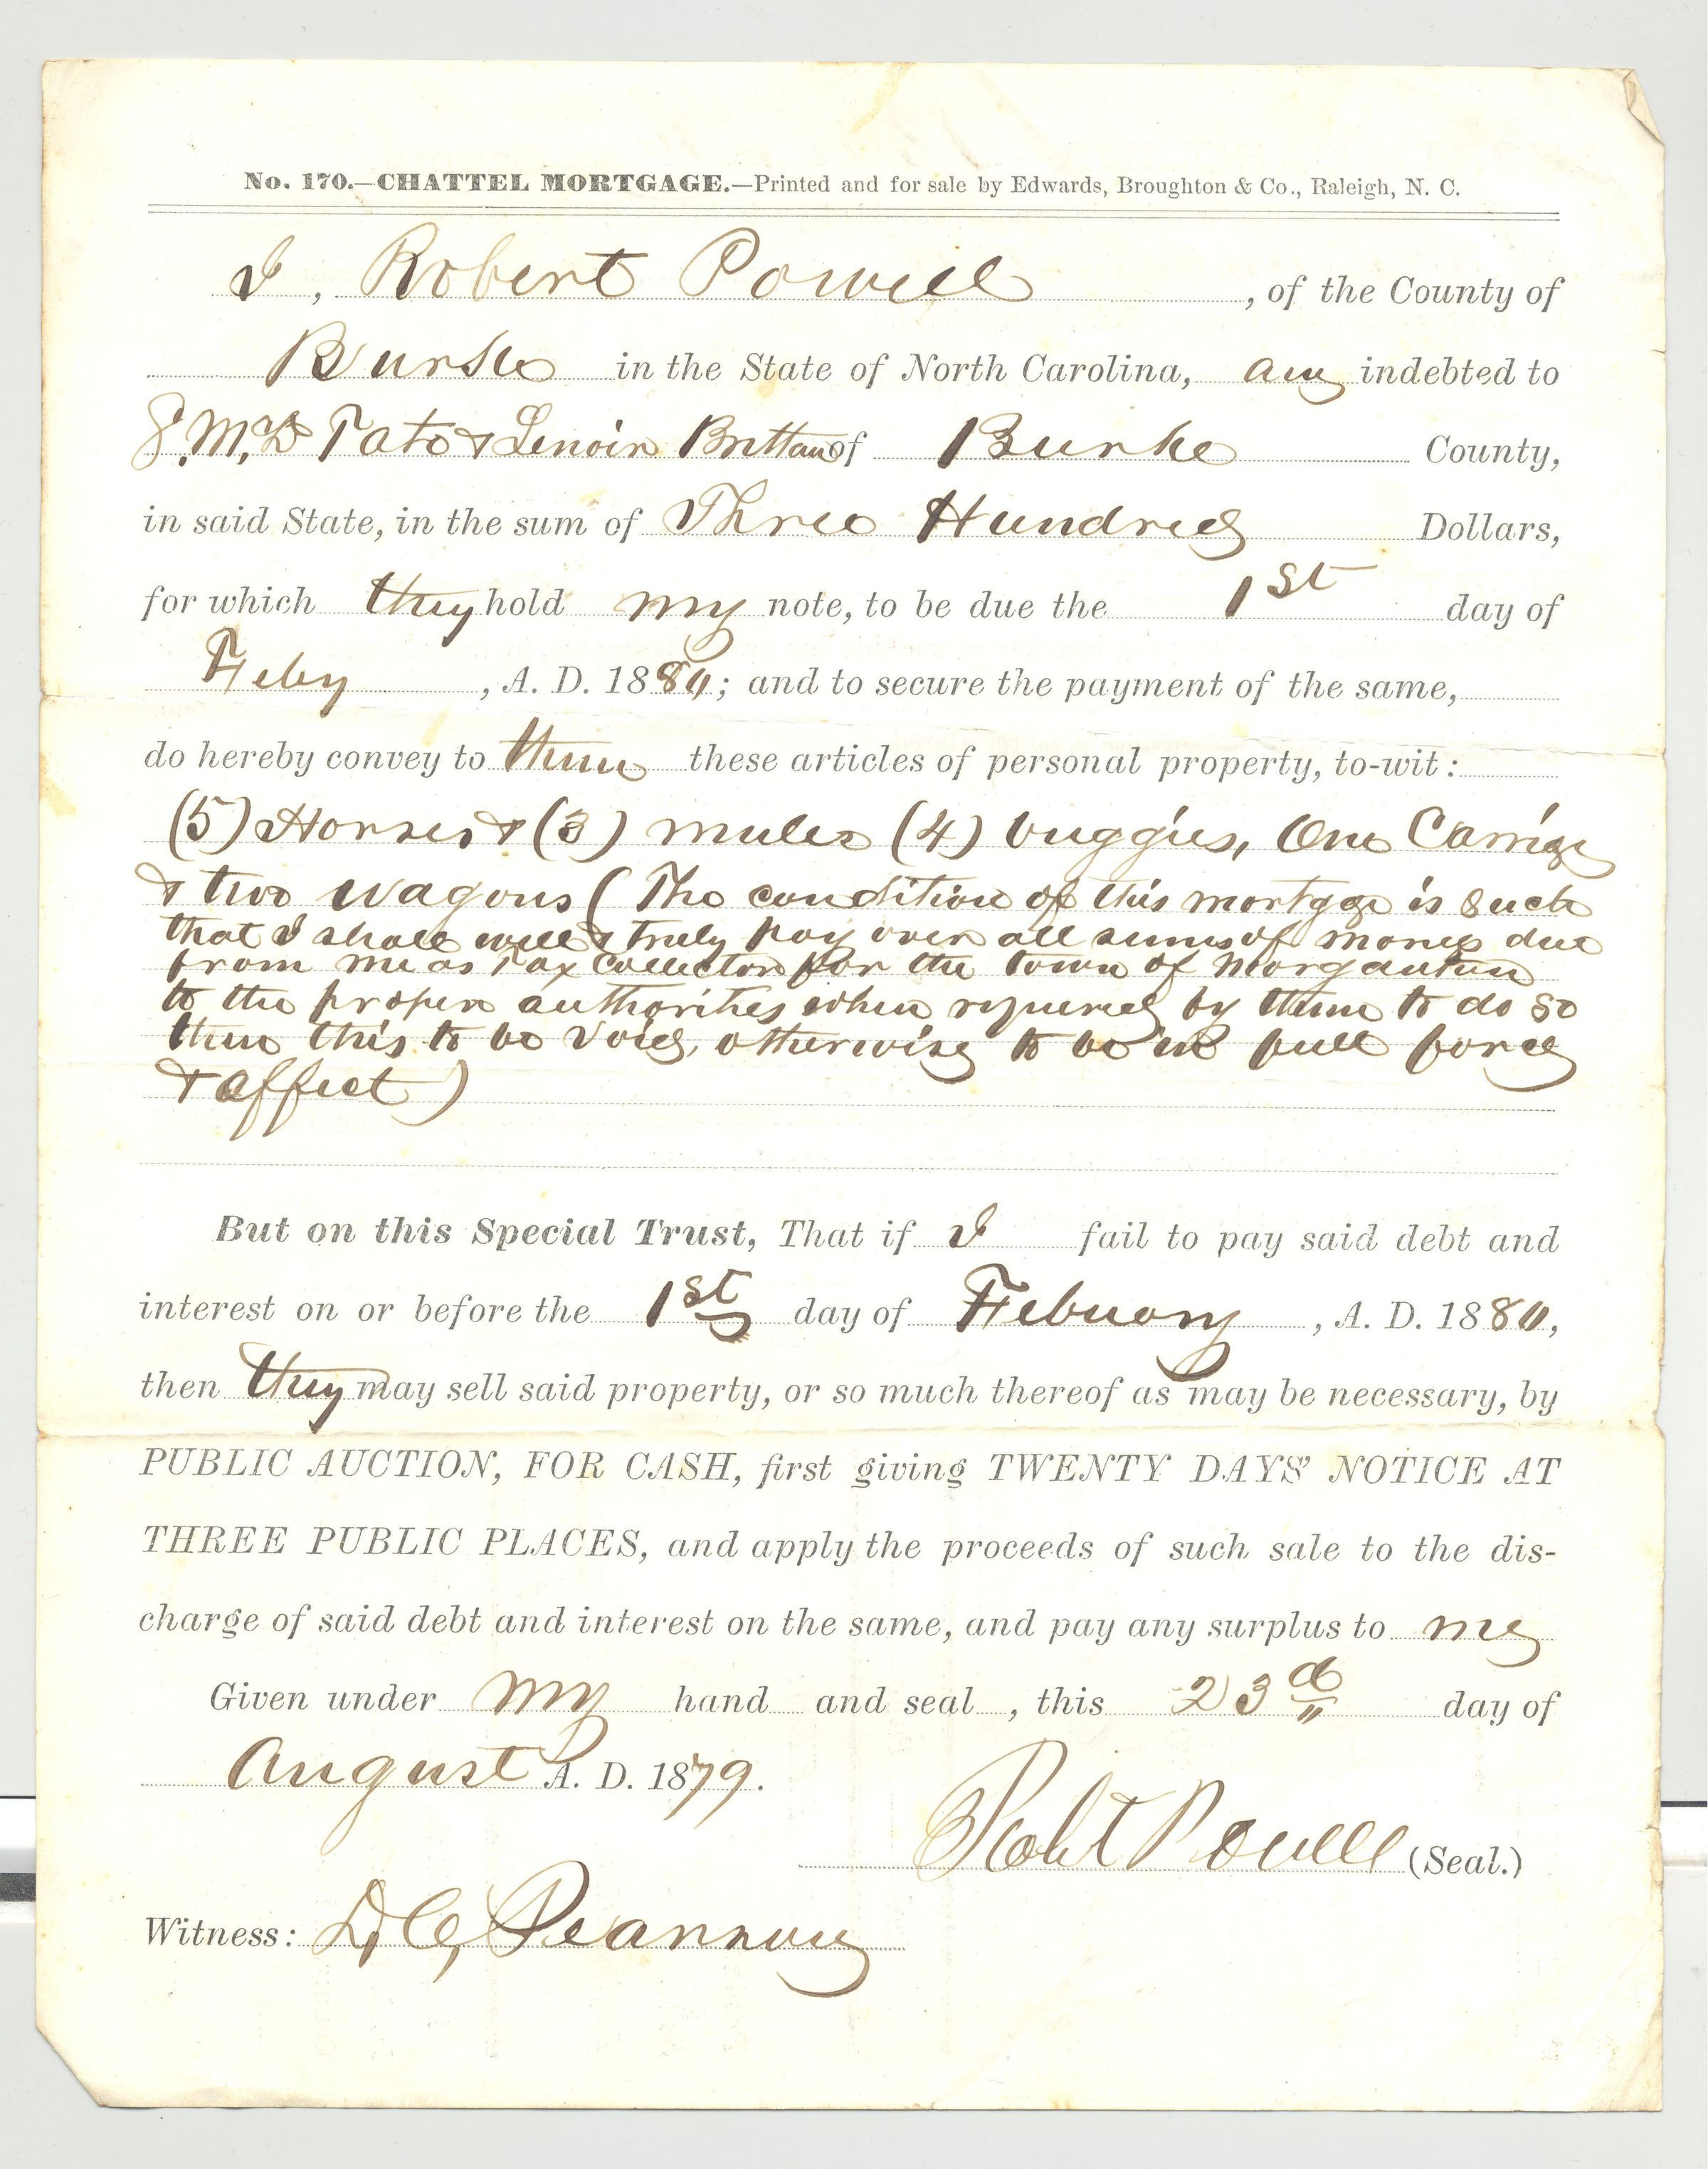 No. 170.—CHATTEL MORTGAGE.—Printed and for sale by Edwards, Broughton & Co., Raleigh, N. C.
I, Robert Powell, of the County of
Burke in the State of North Carolina, am indebted to
S. McD Tate & Lenoir Brittain of Burke County,
in said State, in the sum of Three Hundred Dollars,
for which they hold my note, to be due the 1st day of
Feby, A. D. 1880; and to secure the payment of the same,
do hereby convey to them these articles of personal property, to-wit:
(5) Horses & (3) mules (4) buggies, One Carrige
& two wagons (The condition of this mortgage is such
that I shall well & truly pay over all sums of money due
from me as Tax Collector for the town of Morganton
to the proper authorities when required by them to do so
then this to be void, otherwise to be in full force
& affect)
But on this Special Trust, That if I fail to pay said debt and
interest on or before the 1st day of Febuary, A. D. 1880,
then they may sell said property, or so much thereof as may be necessary, by
PUBLIC AUCTION, FOR CASH, first giving TWENTY DAYS' NOTICE AT
THREE PUBLIC PLACES, and apply the proceeds of such sale to the dis-
charge of said debt and interest on the same, and pay any surplus to me
Given under my hand and seal, this 23d day of
August A. D. 1879.
Robt Powell (Seal.)
Witness: D. C. Pearson